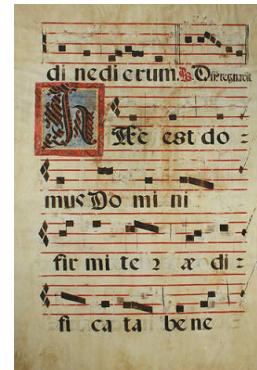 di nedierum. ℟. Dñs regnavit
Haec est do=
mus Do mi ni
fir mi te r æ di=
fi ca ta be ne